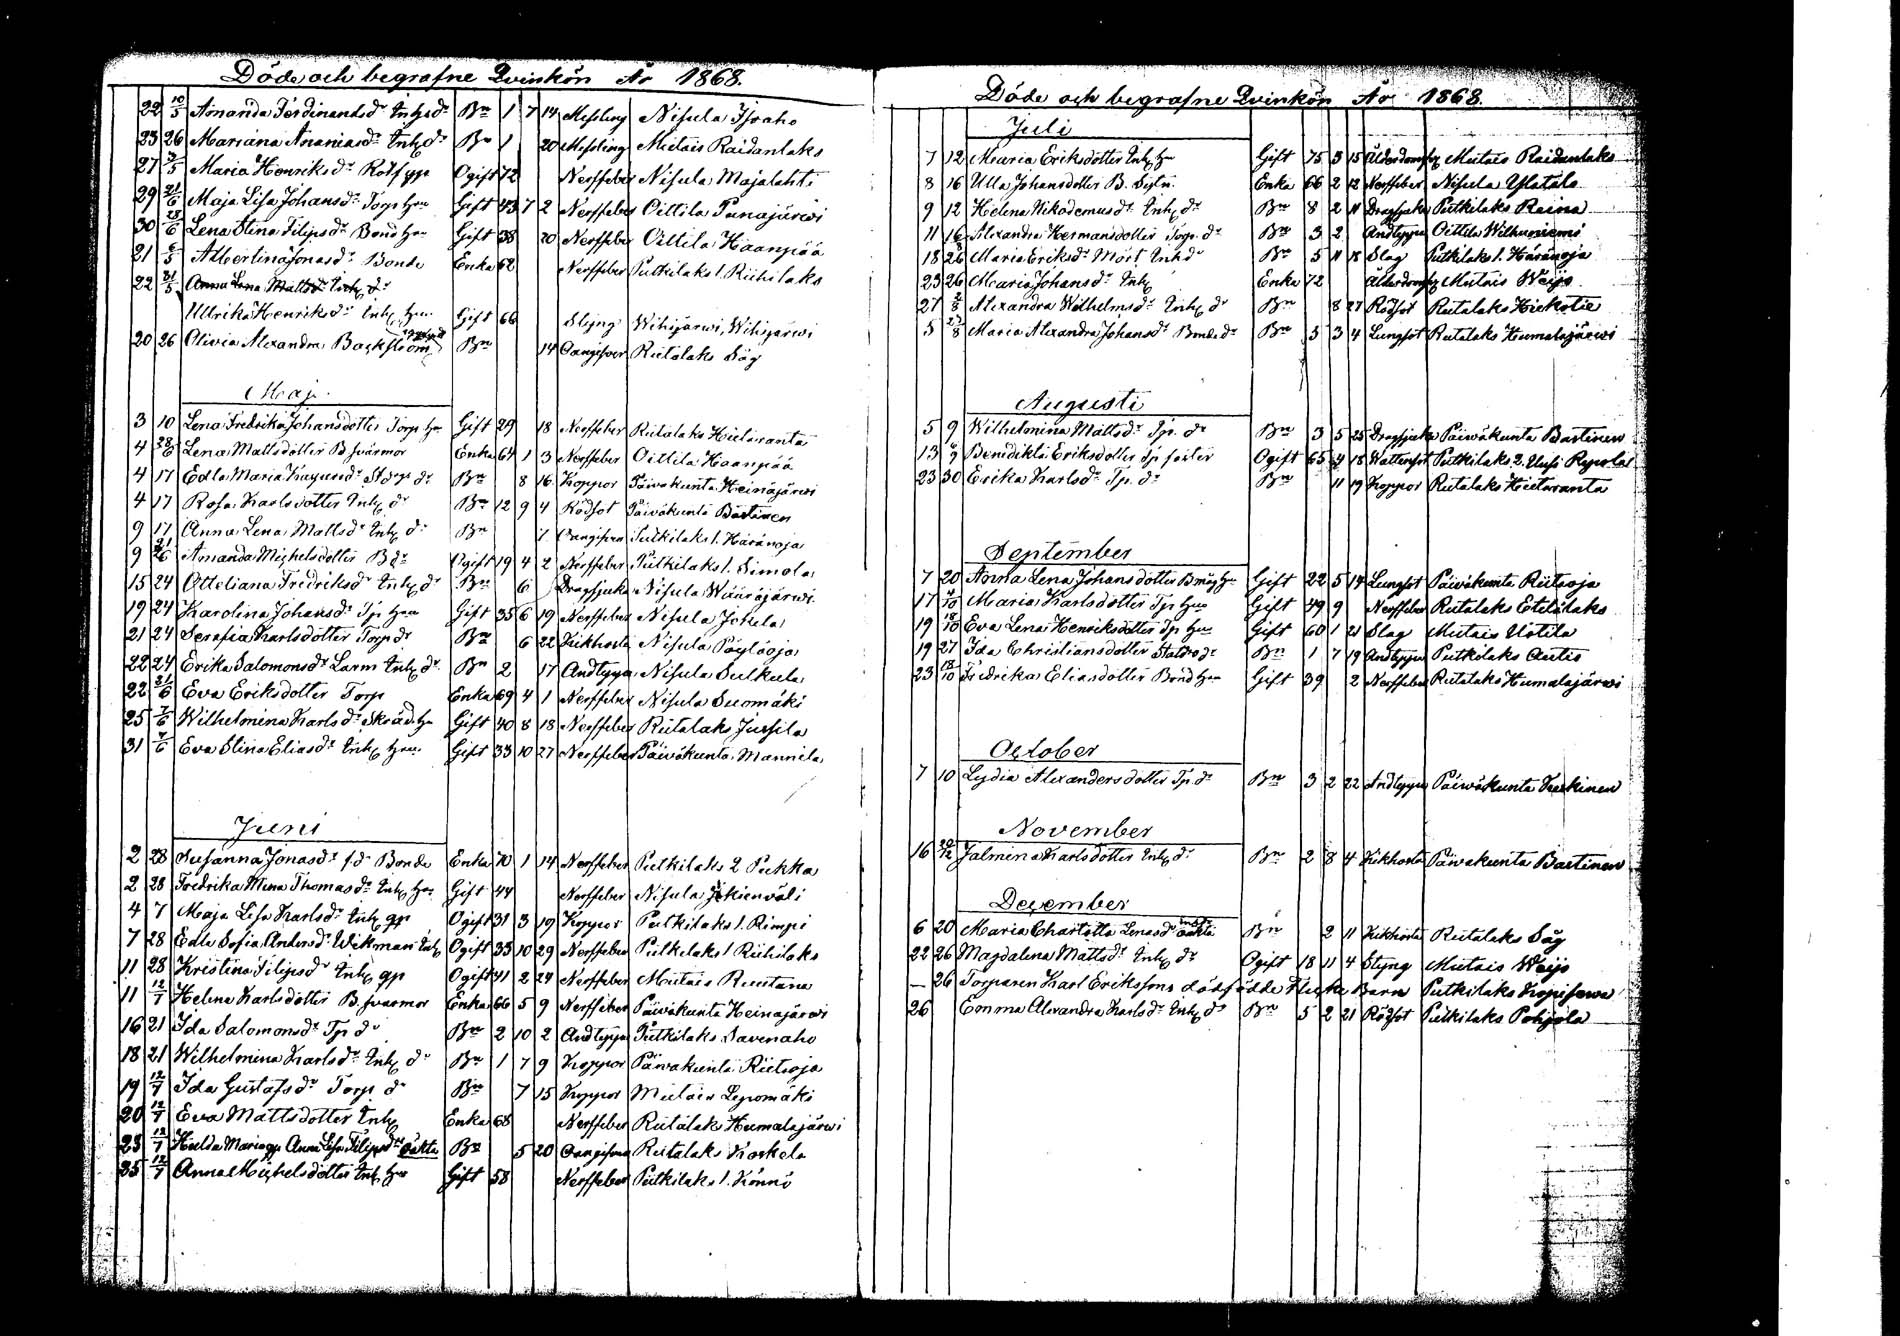 Döde och begrafne Qvinkön År 1868.
22 10/5 Amanda Ferdinandsdr Inhs dr Bn 1 7 14 Messling Nisula Isoaho
23 26 Mariana Ananiasdr Inh dr Bn 1 20 Messling Mutais Raidanlaks
27 3/5 Maria Henriksdr Rotf gp Ogift 72 Nerffeber Nisula Majalahti
29 21/6 Maja Lisa Johansdr Torp hu Gift 43 7 2 Nerffeber Oittila Punajärwi
30 28/6 Lena Stina Filipsdr Bond hu Gift 38 20 Nerffeber Oittila Haanpää
21 6/5 Albertina Jonasdr Bonde Enka 62 Nerffeber Putkilaks 1. Riihilaks
22 31/5 Anna Lena Mattsdr Inh dr
Ulrika Henriksdr Inh hu Gift 66 Styng Wihijärwi, Wihijärwi
20 26 Olivia Alexandra Backström Bn 14 Oangifven Rutalaks Såg
Maj
3 10 Lena Fredrika Johansdotter Torp hu Gift 29 18 Nerffeber Rutalaks Hietaranta
4 28/6 Lena Mattsdotter B. svärmor Enka 64 1 3 Nerffeber Oittila Haanpää
4 17 Edla Maria dr Bn 8 16 Koppor Päiväkunta Heinäjärwi
4 17 Rosa Karlsdotter Inh dr Bn 12 9 4 Rödsot Päiväkunta Bastinen
9 17 Anna Lena Mattsdr Inh dr Bn 7 Oangifven Putkilaks 1. Häränoja
9 21/6 Amanda Michelsdotter B dr Ogift 19 4 2 Nerffeber Putkilaks 1. Simola
15 24 Otteliana Fredriksdr Inh dr Bn 6 Dragsjuka Nisula Wääräjärwi
19 24 Karolina Johansdr Tp hu Gift 35 6 19 Nerffeber Nisula Jokela
21 24 Serafia Karlsdotter Torp dr Bn 6 22 Kikhosta Nisula Pöylöoja
22 24 Erika Salomonsdr Larm Inh dr Bn 2 17 Andtäppa Nisula Sulkula
22 21/6 Eva Eriksdotter Torp Enka 69 4 1 Nerffeber Nisula Suomäki
25 7/6 Wilhelmina Karlsdr Skräd. hu Gift 40 8 18 Nerffeber Rutalaks Jussila
31 7/6 Eva Stina Eliasdr Inh hu Gift 33 10 27 Nerffeber Päiväkunta Mannila
Juni
2 28 Susanna Jonasdr f.d. Bonde Enka 70 1 14 Nerffeber Putkilaks 2 Pukka
2 28 Fredrika Mina Thomasdr Inh hu Gift 44 Nerffeber Nisula
4 7 Maja Lisa Karlsdr Inh gp Ogift 31 3 19 Koppor Putkilaks 1. Rimpi
7 28 Edla Sofia Andersdr Wikman Inh Ogift 33 10 29 Nerffeber Putkilaks 1 Riihilaks
11 28 Kristina Filipsdr Inh gp Ogift 41 2 24 Nerffeber Mutais Ruutana
11 12/7 Helena Karlsdotter B. svärmor Enka 66 5 9 Nerffeber Päiväkunta Heinäjärwi
16 21 Ida Salomonsdr Tp dr Bn 2 10 2 Andtäppa Putkilaks Savenaho
18 21 Wilhelmina Karlsdr Inh dr Bn 1 7 9 Koppor Päiväkunta Rutsoja
19 12/7 Ida Gustafsdr Torp dr Bn 7 15 Koppor Mutais Lepomäki
20 12/7 Eva Mattsdotter Inh Enka 68 Nerffeber Rutalaks Humalajärwi
23 12/7 Hulda Maria gp Anna Lisa Filipsdrs oäkta Bn 5 20 Oangifven Rutalaks Koskela
25 12/7 Anna Michelsdotter Inh hu Gift 58 Nerffeber Putkilaks 1. Könnö
Döde och begrafne Qvinkön År 1868.
Juli
7 12 Maria Eriksdotter Inh hu Gift 75 3 15 Ålderdoms Mutais Raidanlaks
8 16 Ulla Johansdotter B. Enka 66 2 12 Nerffeber Nisula Ylätalo
9 12 Helena Nikodemusdr Inh dr Bn 8 2 11 Dragsjuka Putkilaks Raina
11 16 Alexandra Hermansdotter Torp. dr Bn 3 2 Andtäppa Oittila Wilhuniemi
18 26 Maria Eriksdr Mört Inh dr Bn 5 11 18 Slag Putkilaks 1. Häränoja
23 26 Maria Johansdr Inh Enka 72 Ålderdoms Mutais Weijo
27 2/8 Alexandra Wilhelmsdr Inh dr Bn 8 27 Rödsot Rutalaks Hiekotie
5 23/8 Maria Alexandra Johansdr Bonde dr Bn 5 3 4 Lungsot Rutalaks Humalajärwi
Augusti
5 9 Wilhelmina Mattsdr Tp. dr Bn 3 5 25 Dragsjuka Päiwäkunta Bastinen
13 6/9 Benidikta Eriksdotter Tp syster Ogift 65 4 18 Wattensot Putkilaks 2. Uusi Repola
23 30 Erika Karlsdr Tp. dr Bn 11 19 Koppor Rutalaks Hietaranta
September
7 20 Anna Lena Johansdotter hu Gift 22 5 14 Lungsot Päiväkunta Rutsoja
17 4/10 Maria Karlsdotter Tp hu Gift 49 9 Nerffeber Rutalaks Etelälaks
19 18/10 Eva Lena Henriksdotter Tp hu Gift 60 1 21 Slag Mutais Uotila
19 27 Ida Christiansdotter Bn 1 7 19 Andtäppa Putkilaks Autio
23 18/10 Fredrika Eliasdotter Bond hu Gift 39 2 Nerffeber Rutalaks Humalajärwi
October
7 10 Lydia Alexandersdotter Tp. dr Bn 3 2 22 Andtäppa Päiwäkunta Keskinen
November
16 20/12 Jalmina Karlsdotter Inh dr Bn 2 8 4 Kikhosta Päiwäkunta Bastinen
December
6 20 Maria Charlotta Lenasdr oäkta Bn 2 11 Kikhosta Rutalaks Såg
22 26 Magdalena Mattsdr Inh dr Ogift 18 11 4 Styng Mutais Weijo
— 26 Torparen Karl Erikssons dödfödda Flicke Barn Putkilaks
26 Emma Alexandra Karlsdr Inh dr Bn 5 2 21 Rödsot Putkilaks Pohjola